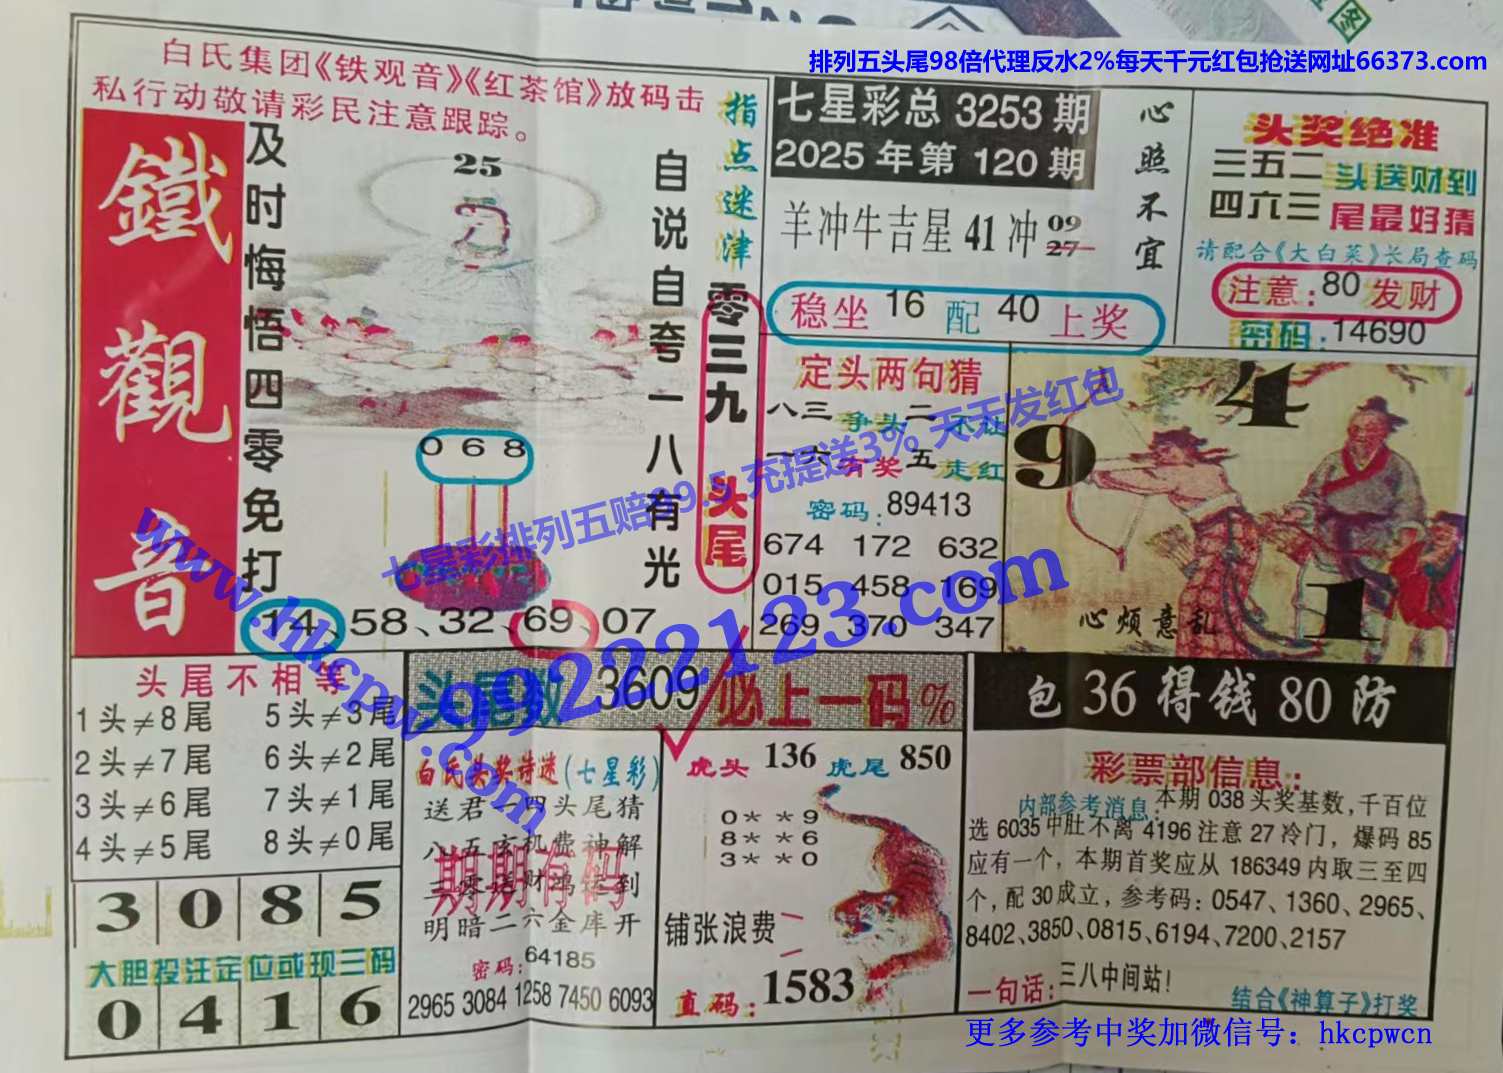 排列五头尾98倍代理反水2%每天千元红包抢送网址66373.com
白氏集团《铁观音》《红茶馆》放码击
私行动敬请彩民注意跟踪。
鐵觀音
及时悔悟四零免打
25
自说自夸一八有光
指点迷津
零三九
头尾
068
14、58、32、69、07
七星彩总 3253 期
2025 年第 120 期
羊冲牛吉星 41 冲 09
27
心照不宜
稳坐 16 配 40 上奖
头奖绝准
三五二头送财到
四六三尾最好猜
请配合《大白菜》长局查码
注意:80 发财
密码:14690
定头两句猜
八三争头二
一六有奖五走红
密码:89413
674 172 632
015 458 169
269 370 347
9 4 1
心烦意乱
七星彩排列五赔99.5 充提送3% 天天发红包
www.hkcpw.com
99222123.com
头尾不相等
1头≠8尾 5头≠3尾
2头≠7尾 6头≠2尾
3头≠6尾 7头≠1尾
4头≠5尾 8头≠0尾
3 0 8 5
大胆投注定位或现三码
0 4 1 6
头尾数 3609 必上一码%
白氏头奖诗迷(七星彩)
送君一四头尾猜
八五玄机费神解
三零送财鸿运到
明暗二六金库开
期期有码
密码:64185
2965 3084 1258 7450 6093
虎头 136 虎尾 850
0**9
8**6
3**0
铺张浪费
直码:1583
包 36 得钱 80 防
彩票部信息:
内部参考消息 本期 038 头奖基数,千百位
选 6035 中肚不离 4196 注意 27 冷门，爆码 85
应有一个，本期首奖应从 186349 内取三至四
个，配 30 成立，参考码:0547、1360、2965、
8402、3850、0815、6194、7200、2157
一句话:三八中间站!
结合《神算子》打奖
更多参考中奖加微信号：hkcpwcn